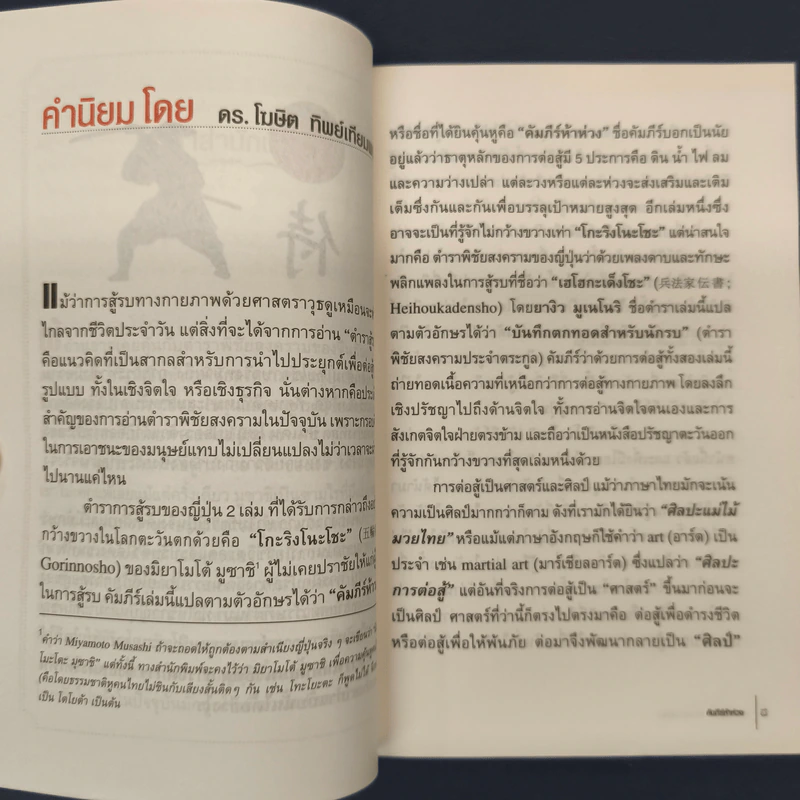 คำนิยม โดย ดร. โฆษิต ทิพย์เทียม
แม้ว่าการสู้รบทางกายภาพด้วยศาสตราวุธดูเหมือนจะ
ไกลจากชีวิตประจำวัน แต่สิ่งที่จะได้จากการอ่าน “ตำรา
คือแนวคิดที่เป็นสากลสำหรับการนำไปประยุกต์เพื่อต่อสู้
รูปแบบ ทั้งในเชิงจิตใจ หรือเชิงธุรกิจ นั่นต่างหากคือ
สำคัญของการอ่านตำราพิชัยสงครามในปัจจุบัน เพราะ
ในการเอาชนะของมนุษย์แทบไม่เปลี่ยนแปลงไม่ว่าเวลาจะ
ไปนานแค่ไหน
ตำราการสู้รบของญี่ปุ่น 2 เล่ม ที่ได้รับการกล่าวถึง
กว้างขวางในโลกตะวันตกด้วยคือ “โกะริงโนะโชะ” (五
Gorinnosho) ของมิยาโมโต้ มูซาชิ¹ ผู้ไม่เคยปราชัยให้แก่
ในการสู้รบ คัมภีร์เล่มนี้แปลตามตัวอักษรได้ว่า “คัมภีร์ห้า
¹คำว่า Miyamoto Musashi ถ้าจะถอดให้ถูกต้องตามสำเนียงญี่ปุ่นจริง ๆ จะเขียนว่า
โมะโตะ มูซาชิ” แต่ทั้งนี้ ทางสำนักพิมพ์จะคงไว้ว่า มิยาโมโต้ มูซาชิ เพื่อความ
(คือโดยธรรมชาติหูคนไทยไม่ชินกับเสียงสั้นติดๆ กัน เช่น โทะโยะตะ ก็พูดไม่ได้
เป็น โตโยต้า เป็นต้น
หรือชื่อที่ได้ยินคุ้นหูคือ “คัมภีร์ห้าห่วง” ชื่อคัมภีร์บอกเป็นนัย
อยู่แล้วว่าธาตุหลักของการต่อสู้มี 5 ประการคือ ดิน น้ำ ไฟ ลม
และความว่างเปล่า แต่ละวงหรือแต่ละห่วงจะส่งเสริมและเติม
เต็มซึ่งกันและกันเพื่อบรรลุเป้าหมายสูงสุด อีกเล่มหนึ่งซึ่ง
อาจจะเป็นที่รู้จักไม่กว้างขวางเท่า “โกะริงโนะโชะ” แต่น่าสนใจ
มากคือ ตำราพิชัยสงครามของญี่ปุ่นว่าด้วยเพลงดาบและทักษะ
พลิกแพลงในการสู้รบที่ชื่อว่า “เฮโฮกะเด็งโชะ” (兵法家伝書;
Heihoukadensho) โดยยางิว มูเนโนริ ชื่อตำราเล่มนี้แปล
ตามตัวอักษรได้ว่า “บันทึกตกทอดสำหรับนักรบ” (ตำรา
พิชัยสงครามประจำตระกูล) คัมภีร์ว่าด้วยการต่อสู้ทั้งสองเล่มนี้
ถ่ายทอดเนื้อความที่เหนือกว่าการต่อสู้ทางกายภาพ โดยลงลึก
เชิงปรัชญาไปถึงด้านจิตใจ ทั้งการอ่านจิตใจตนเองและการ
สังเกตจิตใจฝ่ายตรงข้าม และถือว่าเป็นหนังสือปรัชญาตะวันออก
ที่รู้จักกันกว้างขวางที่สุดเล่มหนึ่งด้วย
การต่อสู้เป็นศาสตร์และศิลป์ แม้ว่าภาษาไทยมักจะเน้น
ความเป็นศิลป์มากกว่าก็ตาม ดังที่เรามักได้ยินว่า “ศิลปะแม่ไม้
มวยไทย” หรือแม้แต่ภาษาอังกฤษก็ใช้คำว่า art (อาร์ต) เป็น
ประจำ เช่น martial art (มาร์เชียลอาร์ต) ซึ่งแปลว่า “ศิลปะ
การต่อสู้” แต่อันที่จริงการต่อสู้เป็น “ศาสตร์” ขึ้นมาก่อนจะ
เป็นศิลป์ ศาสตร์ที่ว่านี้ก็ตรงไปตรงมาคือ ต่อสู้เพื่อดำรงชีวิต
หรือต่อสู้เพื่อให้พ้นภัย ต่อมาจึงพัฒนากลายเป็น “ศิลป์”
คัมภีร์ห้าห่วง